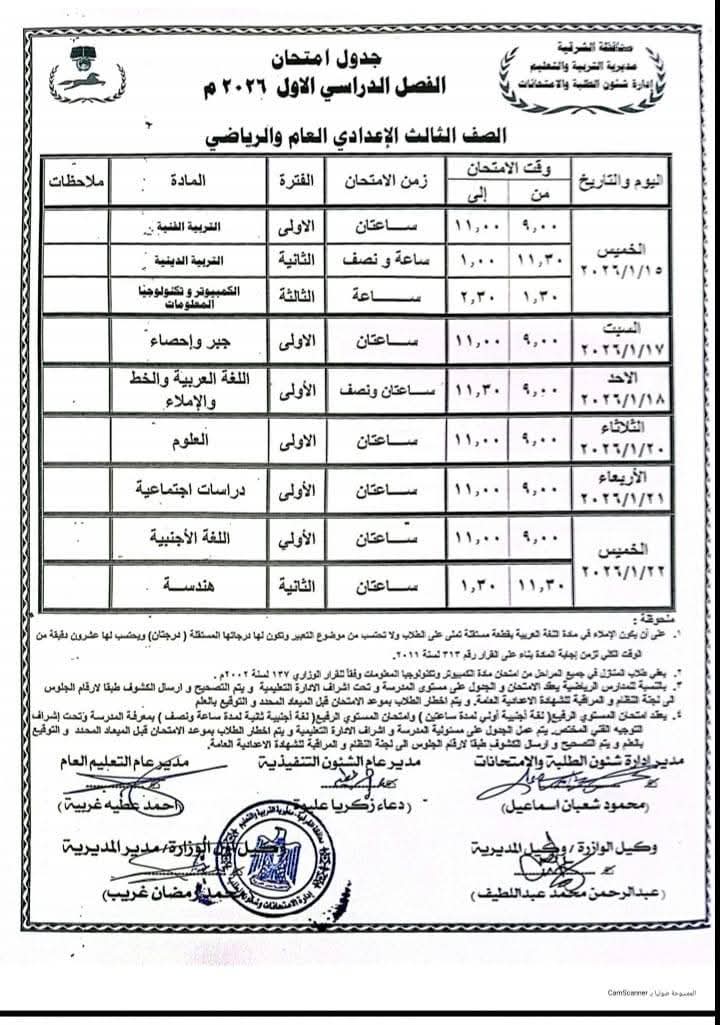 محافظة الشرقية
مديرية التربية والتعليم
إدارة شئون الطلبة والامتحانات
جدول امتحان
الفصل الدراسي الاول ٢٠٢٦ م
الصف الثالث الإعدادي العام والرياضي
اليوم والتاريخ وقت الامتحان زمن الامتحان الفترة المادة ملاحظات
من إلى
الخميس ٢٠٢٦/١/١٥
٩,٠٠ ١١,٠٠ ساعتان الاولى التربية الفنية
١١,٣٠ ١,٠٠ ساعة و نصف الثانية التربية الدينية
١,٣٠ ٢,٣٠ ساعة الثالثة الكمبيوتر و تكنولوجيا المعلومات
السبت ٢٠٢٦/١/١٧ ٩,٠٠ ١١,٠٠ ساعتان الاولى جبر وإحصاء
الاحد ٢٠٢٦/١/١٨ ٩,٠٠ ١١,٣٠ ساعتان ونصف الأولى اللغة العربية والخط والإملاء
الثلاثاء ٢٠٢٦/١/٢٠ ٩,٠٠ ١١,٠٠ ساعتان الاولى العلوم
الأربعاء ٢٠٢٦/١/٢١ ٩,٠٠ ١١,٠٠ ساعتان الأولى دراسات اجتماعية
الخميس ٢٠٢٦/١/٢٢
٩,٠٠ ١١,٠٠ ساعتان الأولي اللغة الأجنبية
١١,٣٠ ١,٣٠ ساعتان الثانية هندسة
ملحوظة :
١. على أن يكون الإملاء في مادة اللغة العربية بقطعة مستقلة تملى على الطلاب ولا تحتسب من موضوع التعبير وتكون لها درجاتها المستقلة ( درجتان) ويحتسب لها عشرون دقيقة من
الوقت الكلي لزمن إجابة المادة بناء على القرار رقم ٣١٣ لسنة ٢٠١١.
٢. يعفي طلاب المنازل في جميع المراحل من امتحان مادة الكمبيوتر وتكنولوجيا المعلومات وفقاً للقرار الوزاري ١٣٧ لسنة ٢٠٠٢م.
٣. بالنسبة للمدارس الرياضية يعقد الامتحان و الجدول على مستوى المدرسة و تحت اشراف الادارة التعليمية و يتم التصحيح و ارسال الكشوف طبقا لارقام الجلوس
الى لجنة النظام و المراقبة للشهادة الاعدادية العامة. و يتم اخطار الطلاب بموعد الامتحان قبل الميعاد المحدد و التوقيع بالعلم
٤. يعقد امتحان المستوي الرفيع( لغة أجنبية أولي لمدة ساعتين ) وامتحان المستوي الرفيع( لغة أجنبية ثانية لمدة ساعة ونصف ) بمعرفة المدرسة وتحت إشراف
التوجيه الفني المختص. يتم عمل الجدول على مسئولية المدرسة و اشراف الادارة التعليمية و يتم اخطار الطلاب بموعد الامتحان قبل الميعاد المحدد و التوقيع
بالعلم و يتم التصحيح و ارسال الكشوف طبقا لارقام الجلوس الى لجنة النظام و المراقبة للشهادة الاعدادية العامة.
مدير إدارة شئون الطلبة والامتحانات مدير عام الشئون التنفيذية مدير عام التعليم العام
(محمود شعبان اسماعيل) (دعاء زكريا (احمد عطيه غريبة)
وكيل الوازرة / وكيل المديرية وكيل أول الوزارة / مدير المديرية
(عبدالرحمن محمد عبداللطيف) رمضان غريب)
الممسوحة ضوئيا بـ CamScanner